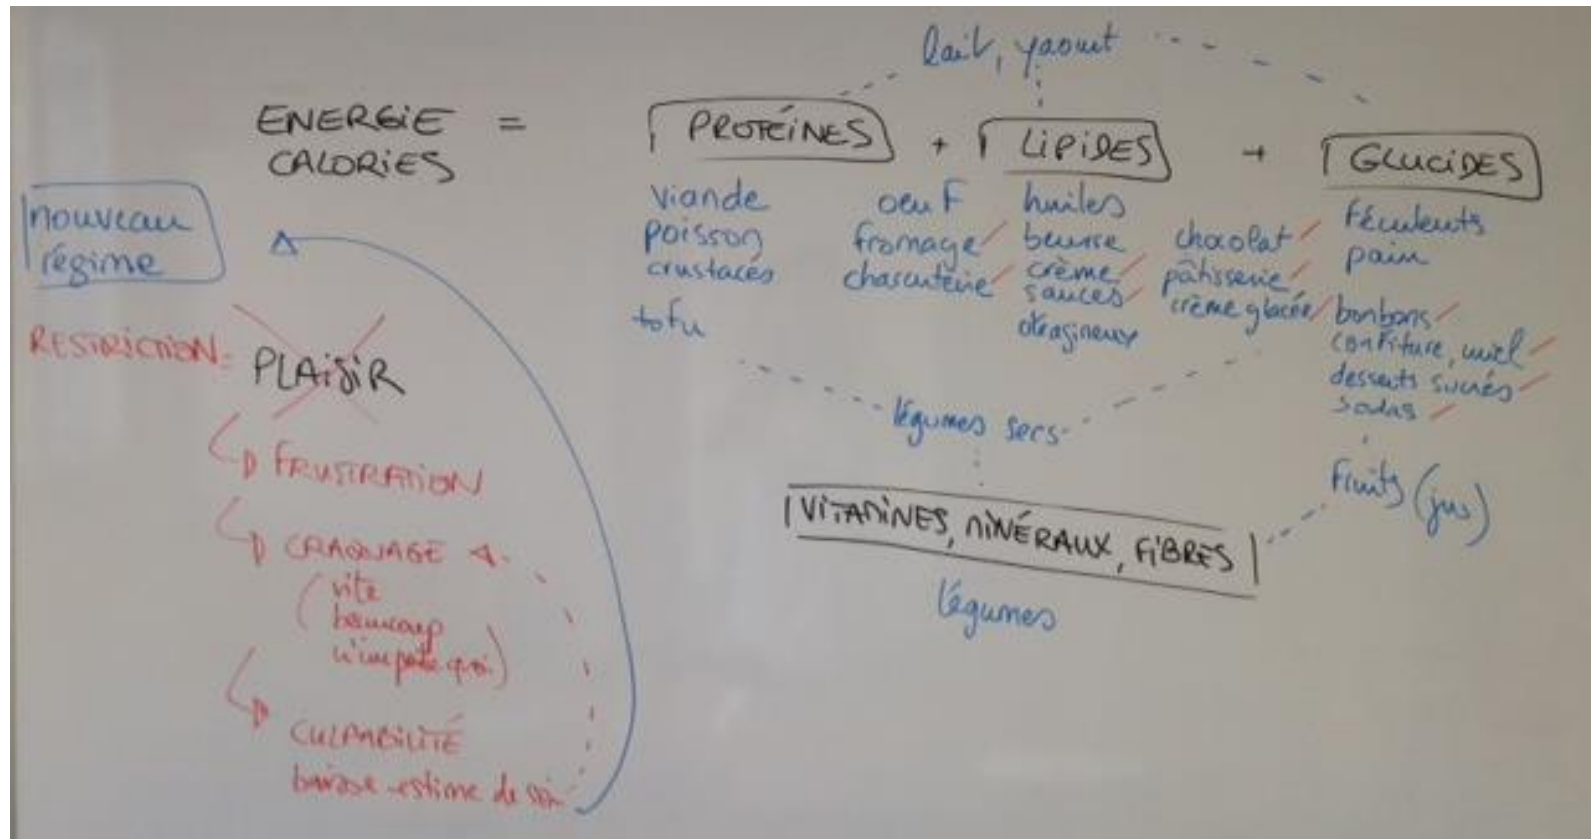 lait, yaourt
ENERGIE =
CALORIES
PROTÉINES + LIPIDES + GLUCIDES
viande
poisson
crustacés
tofu
oeuf
fromage
charcuterie
huiles
beurre
crème
sauces
oléagineux
chocolat
pâtisserie
crème glacée
féculents
pain
bonbons
confiture, miel
desserts sucrés
sodas
légumes secs
fruits (jus)
VITAMINES, MINÉRAUX, FIBRES
légumes
nouveau
régime
RESTRICTION =
PLAISIR
FRUSTRATION
CRAQUAGE
(vite
beaucoup
n'importe quoi)
CULPABILITÉ
baisse estime de soi